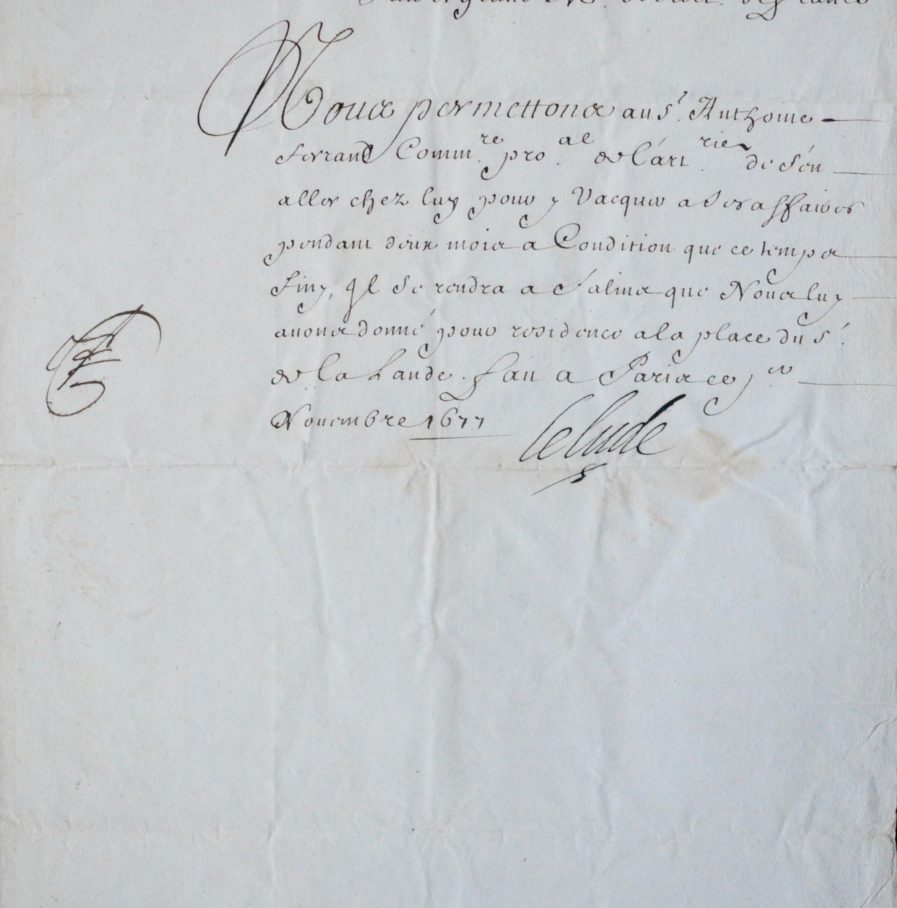 Nous permettons au Sr. Anthoine
ferrand Comm.re pro.al de l'art.rie de s'en
aller chez luy pour y Vacquer a ses affaires
pendant deux mois a Condition que ce temps
finy, ql se rendra a Salins que Nous luy
avons donné pour residence a la place du Sr.
de la Lande. fait a Paris ce
Novembre 1677
le lude